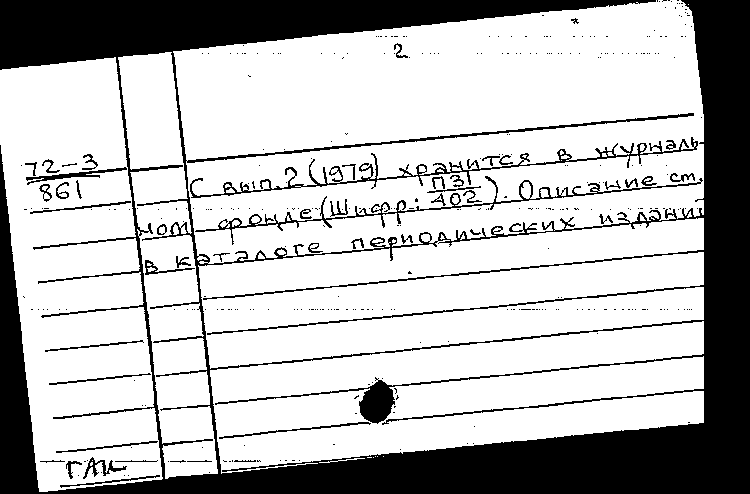 2
72-3
861
С вып. 2 (1979) хранится в журналь-
ном фонде (Шифр: П31/402). Описание см.
в каталоге периодических изданий